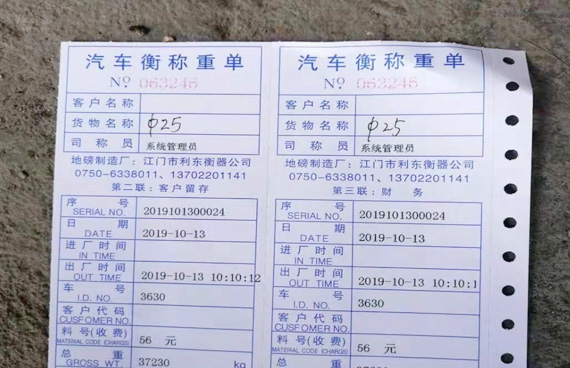 汽车衡称重单
№ 063246
客户名称
货物名称 φ25
司称员 系统管理员
地磅制造厂：江门市利东衡器公司
0750-6338011、13702201141
第二联：客户留存
序号 SERIAL NO. 2019101300024
日期 DATE 2019-10-13
进厂时间 IN TIME
出厂时间 OUT TIME 2019-10-13 10:10:12
车号 I.D. NO. 3630
客户代码 CUSFOMER NO.
料号(收费) MATERIAL CODE (CHARGS) 56 元
总重 GROSS WT. 37230 kg
汽车衡称重单
№ 063246
客户名称
货物名称 φ25
司称员 系统管理员
地磅制造厂：江门市利东衡器公司
0750-6338011、13702201141
第三联：财务
序号 SERIAL NO. 2019101300024
日期 DATE 2019-10-13
进厂时间 IN TIME
出厂时间 OUT TIME 2019-10-13 10:10:1
车号 I.D. NO. 3630
客户代码 CUSFOMER NO.
料号(收费) MATERIAL CODE (CHARGS) 56 元
总重